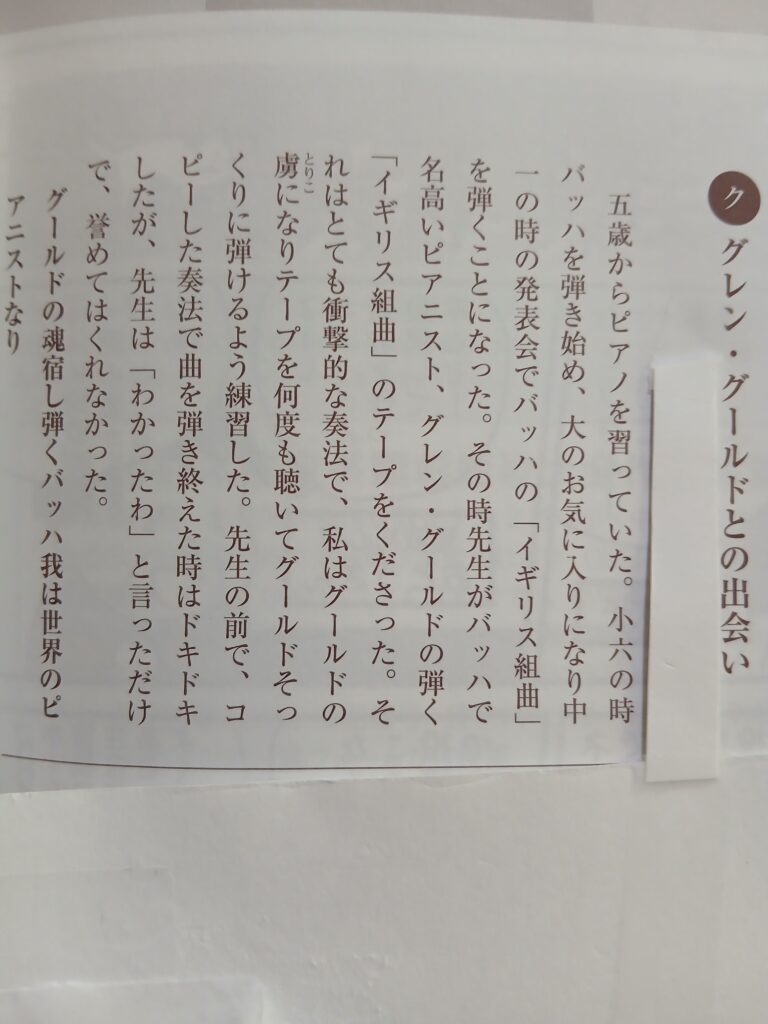 ク グレン・グールドとの出会い
五歳からピアノを習っていた。小六の時
バッハを弾き始め、大のお気に入りになり中
一の時の発表会でバッハの「イギリス組曲」
を弾くことになった。その時先生がバッハで
名高いピアニスト、グレン・グールドの弾く
「イギリス組曲」のテープをくださった。そ
れはとても衝撃的な奏法で、私はグールドの
虜になりテープを何度も聴いてグールドそっ
とりこ
くりに弾けるよう練習した。先生の前で、コ
ピーした奏法で曲を弾き終えた時はドキドキ
したが、先生は「わかったわ」と言っただけ
で、誉めてはくれなかった。
グールドの魂宿し弾くバッハ我は世界のピ
アニストなり